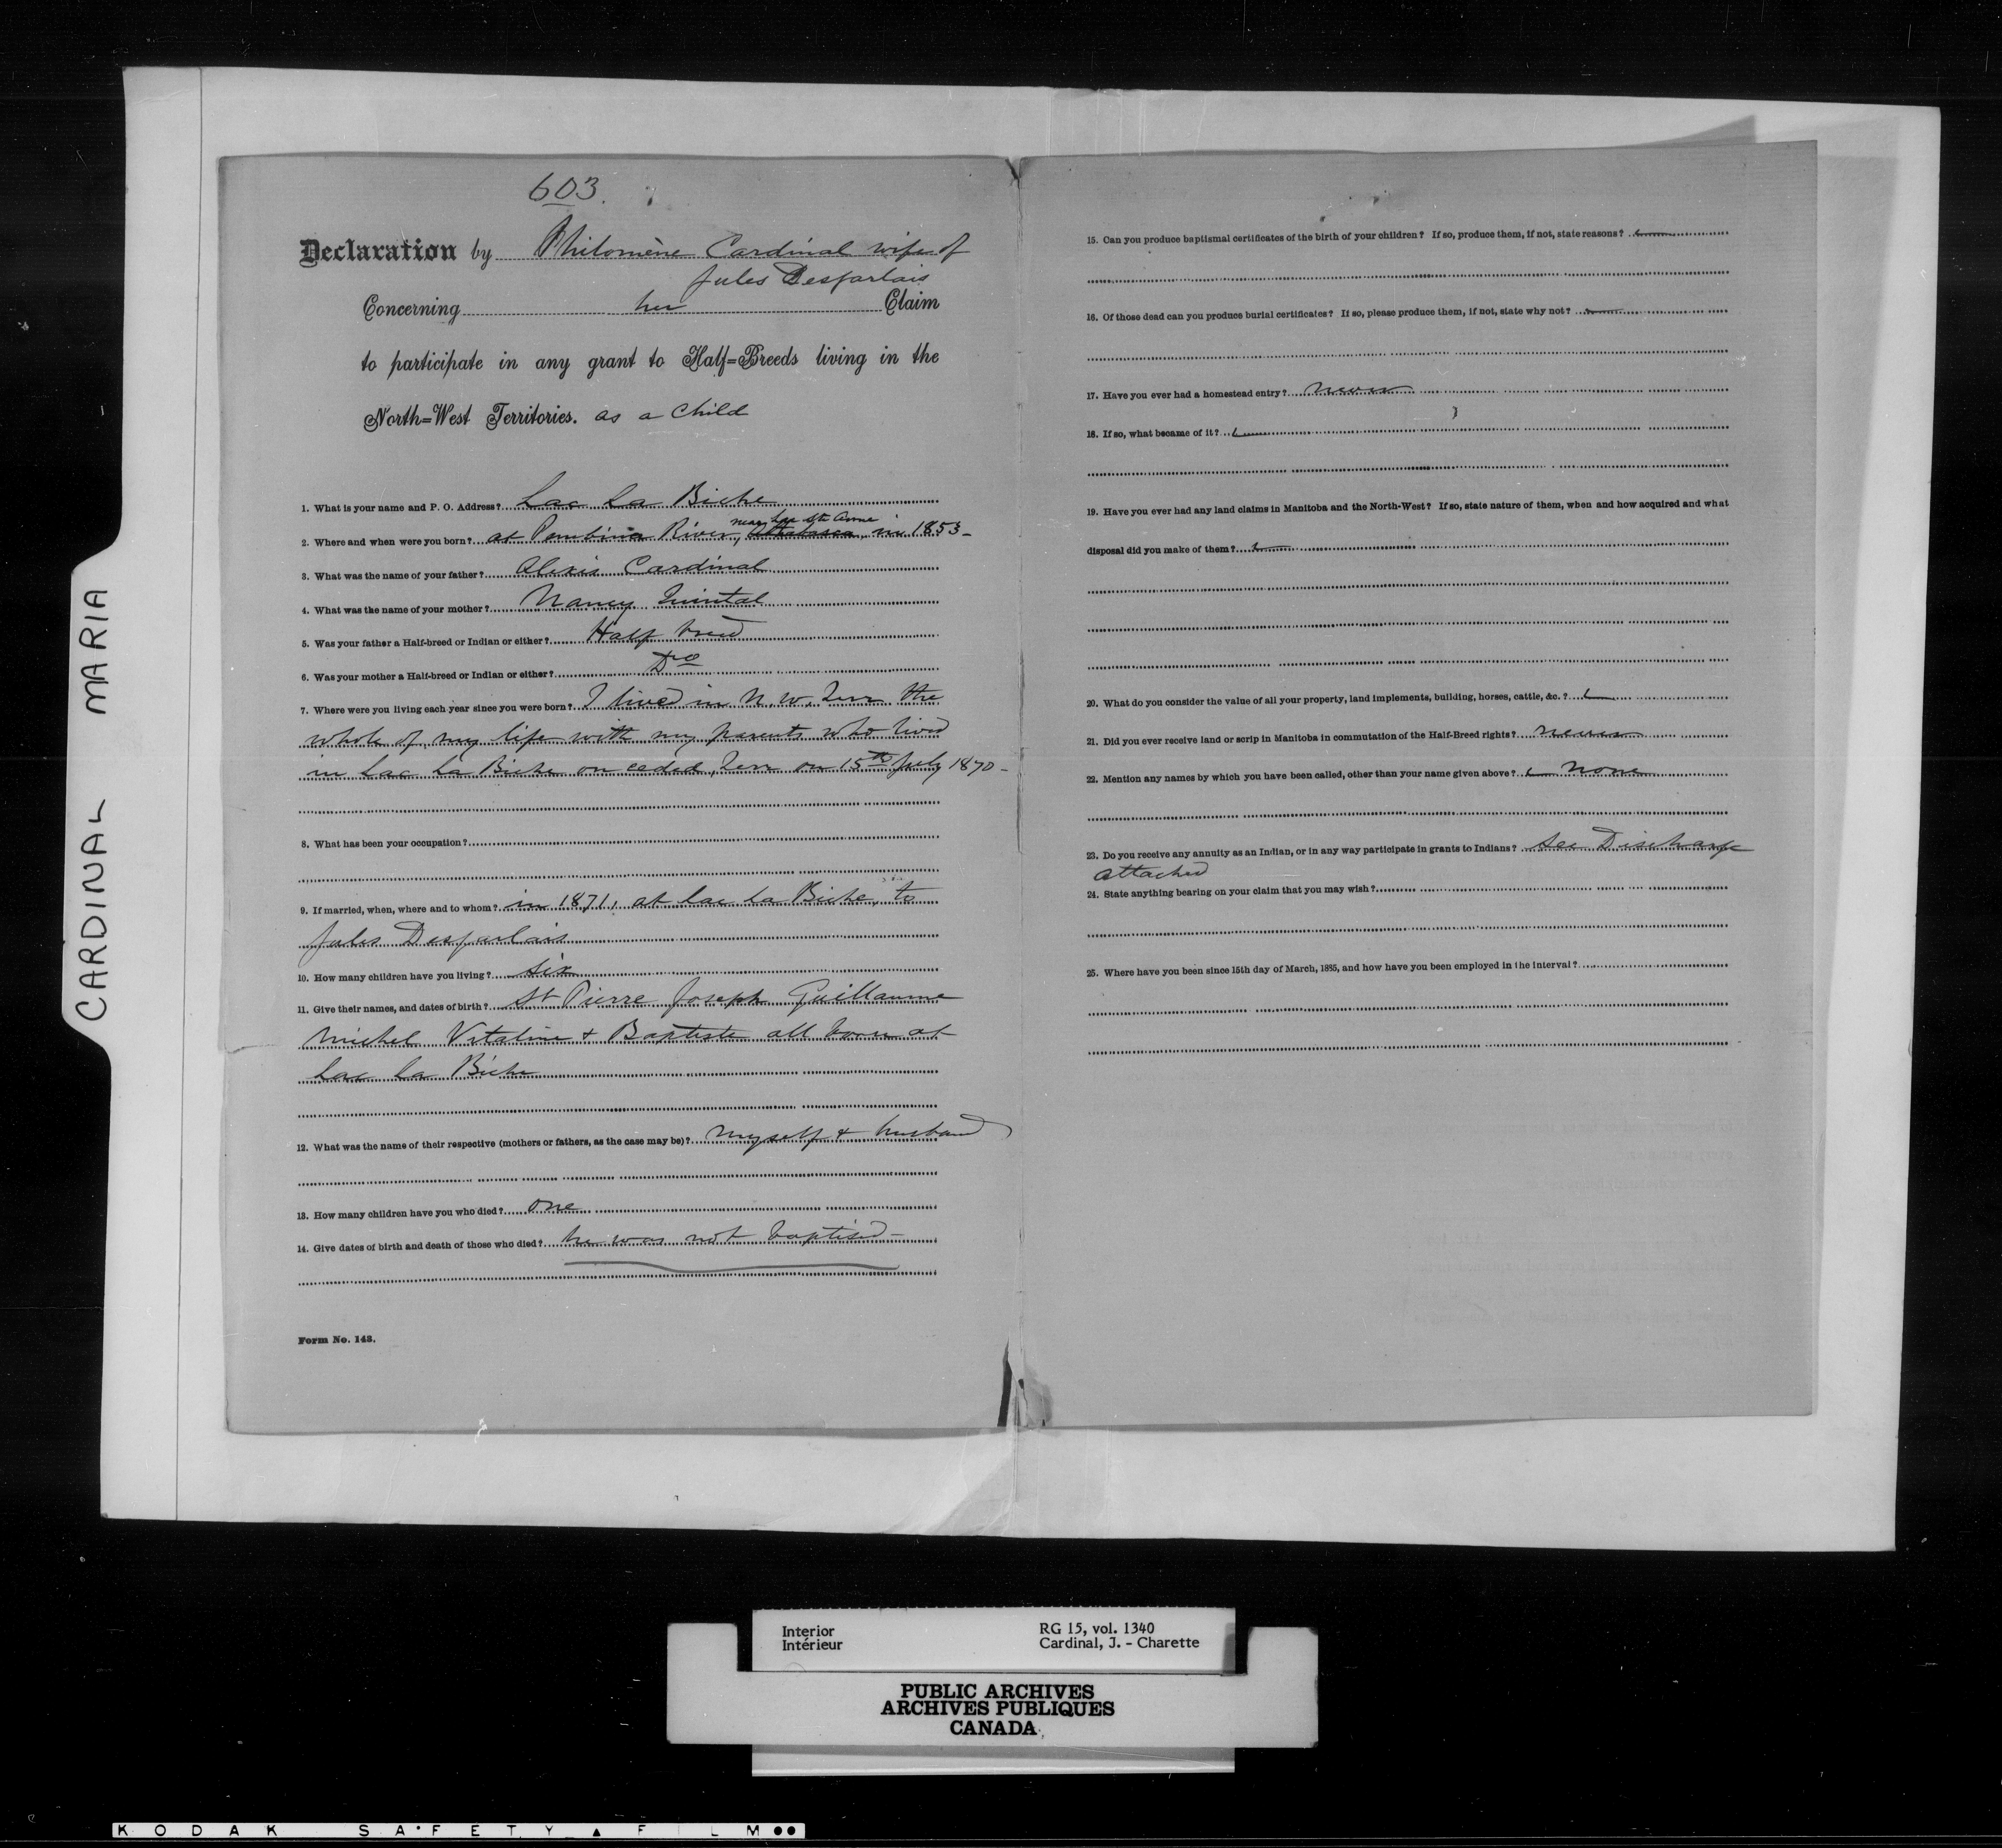 CARDINAL MARIA
603.
Declaration by Philomène Cardinal wife of
Jules Desjarlais
Concerning her Claim
to participate in any grant to Half=Breeds living in the
North=West Territories. as a Child
1. What is your name and P. O. Address? Lac La Biche
near Lac St. Anne
2. Where and when were you born? at Pembina River, Athabasca in 1853-
3. What was the name of your father? Alexis Cardinal
4. What was the name of your mother? Nancy Quintal
5. Was your father a Half-breed or Indian or either? Half breed
6. Was your mother a Half-breed or Indian or either? Do
7. Where were you living each year since you were born? I lived in N. W. Terr the
whole of my life with my parents who lived
in Lac La Biche on ceded Terr on 15th July 1870-
8. What has been your occupation?
9. If married, when, where and to whom? in 1871, at Lac La Biche, to
Jules Desjarlais
10. How many children have you living? six
11. Give their names, and dates of birth? St Pierre Joseph Guillaume
Michel Vitaline + Baptiste all born at
Lac La Biche
12. What was the name of their respective (mothers or fathers, as the case may be)? myself + husband
13. How many children have you who died? one
14. Give dates of birth and death of those who died? he was not baptised-
Form No. 143.
15. Can you produce baptismal certificates of the birth of your children? If so, produce them, if not, state reasons?
16. Of those dead can you produce burial certificates? If so, please produce them, if not, state why not?
17. Have you ever had a homestead entry? never
18. If so, what became of it?
19. Have you ever had any land claims in Manitoba and the North-West? If so, state nature of them, when and how acquired and what
disposal did you make of them?
20. What do you consider the value of all your property, land implements, building, horses, cattle, &c.?
21. Did you ever receive land or scrip in Manitoba in commutation of the Half-Breed rights? never
22. Mention any names by which you have been called, other than your name given above? none
23. Do you receive any annuity as an Indian, or in any way participate in grants to Indians? See Discharge
attached
24. State anything bearing on your claim that you may wish?
25. Where have you been since 15th day of March, 1885, and how have you been employed in the interval?
Interior
Intérieur
RG 15, vol. 1340
Cardinal, J. - Charette
PUBLIC ARCHIVES
ARCHIVES PUBLIQUES
CANADA
KODAK SAFETY FILM